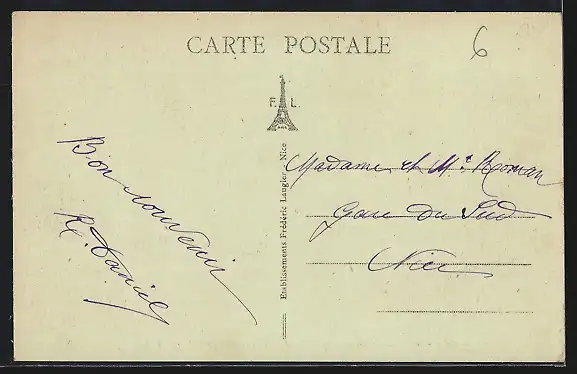 CARTE POSTALE
6
F. L.
Bon souvenir
R. Daniel
Etablissements Frédéric Laugier, Nice
Madame et Mr Roman
Gare du Sud
Nice